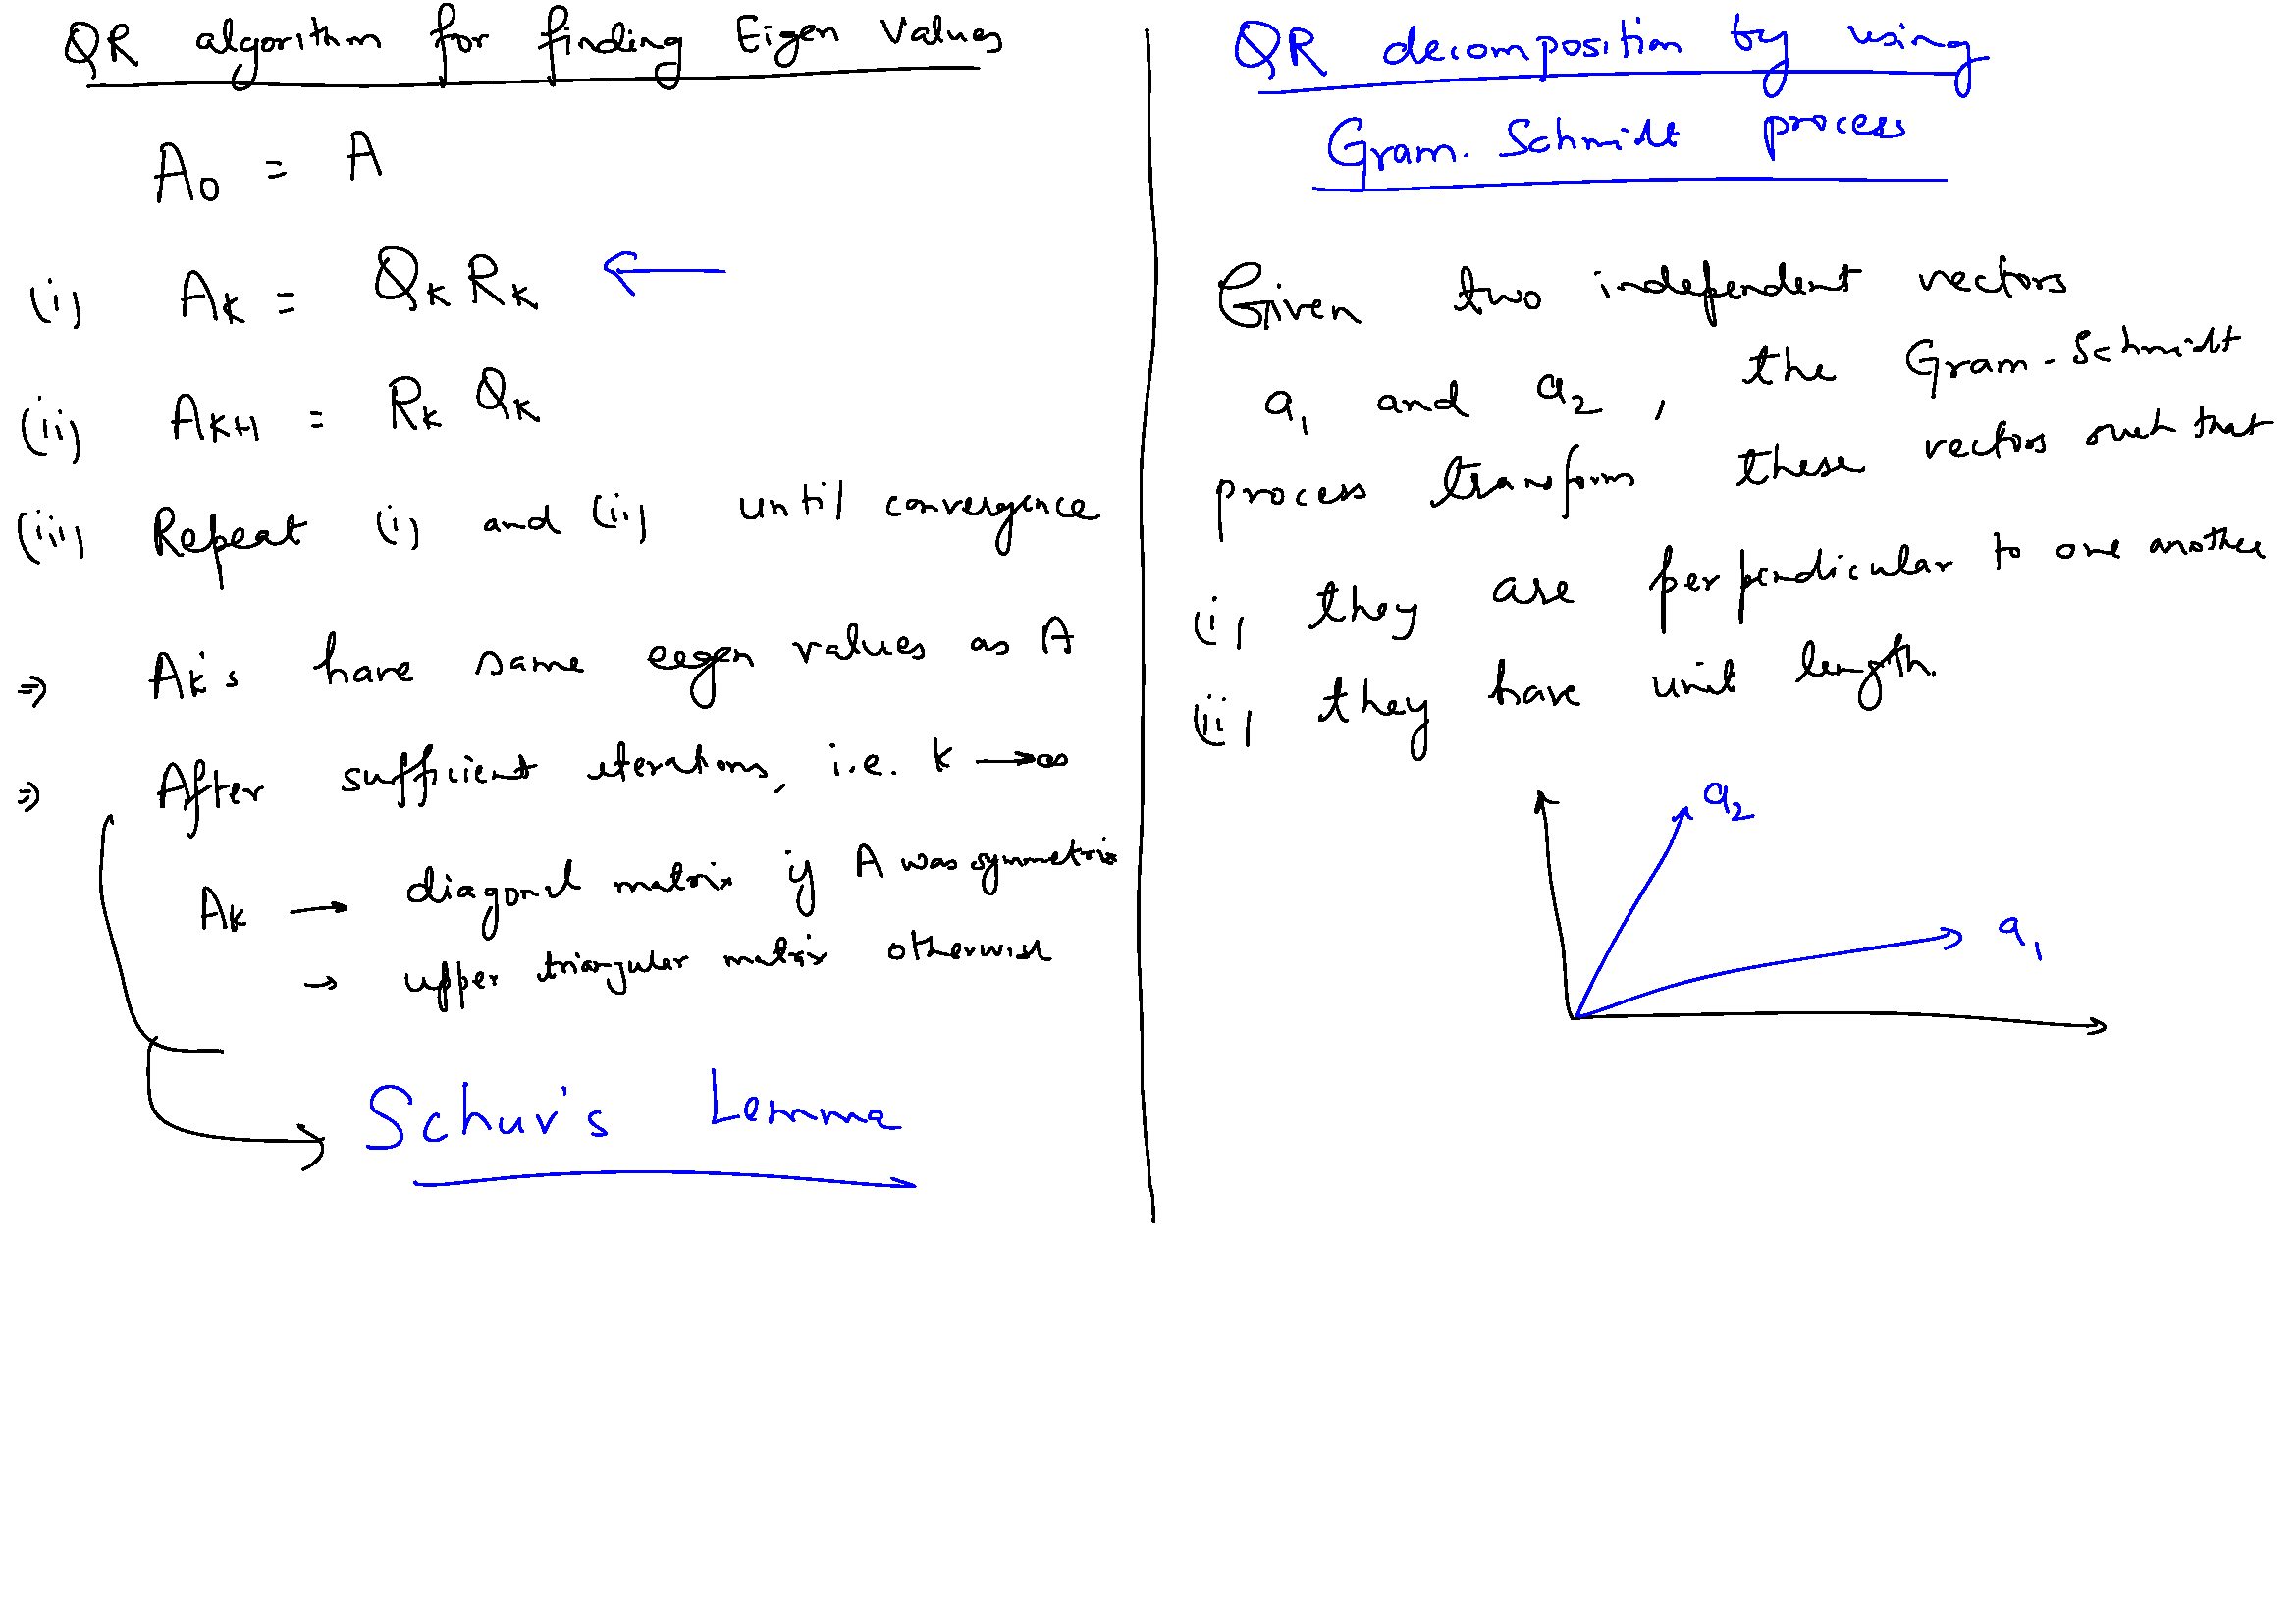 QR algorithm for finding Eigen Values
A₀ = A
(i) Aₖ = Qₖ Rₖ ←
(ii) Aₖ₊₁ = Rₖ Qₖ
(iii) Repeat (i) and (ii) until convergence
⇒ Aₖ's have same eigen values as A
⇒ After sufficient iterations, i.e. k → ∞
Aₖ → diagonal matrix if A was symmetric
→ upper triangular matrix otherwise
Schur's Lemma
QR decomposition by using
Gram-Schmidt process
Given two independent vectors
a₁ and a₂, the Gram-Schmidt
process transform these vectors such that
(i) they are perpendicular to one another
(ii) they have unit length.
a₂
a₁